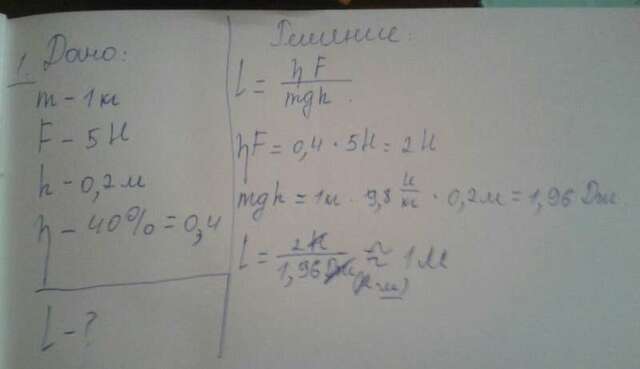 1. Дано:
m - 1 кг
F - 5 Н
h - 0,2 м
η - 40% = 0,4
L - ?
Решение:
L = ηF / mgh.
ηF = 0,4 · 5Н = 2 Н
mgh = 1кг · 9,8 Н/кг · 0,2м = 1,96 Дж
L = 2Н / 1,96 Дж (Н·м) ≈ 1 м